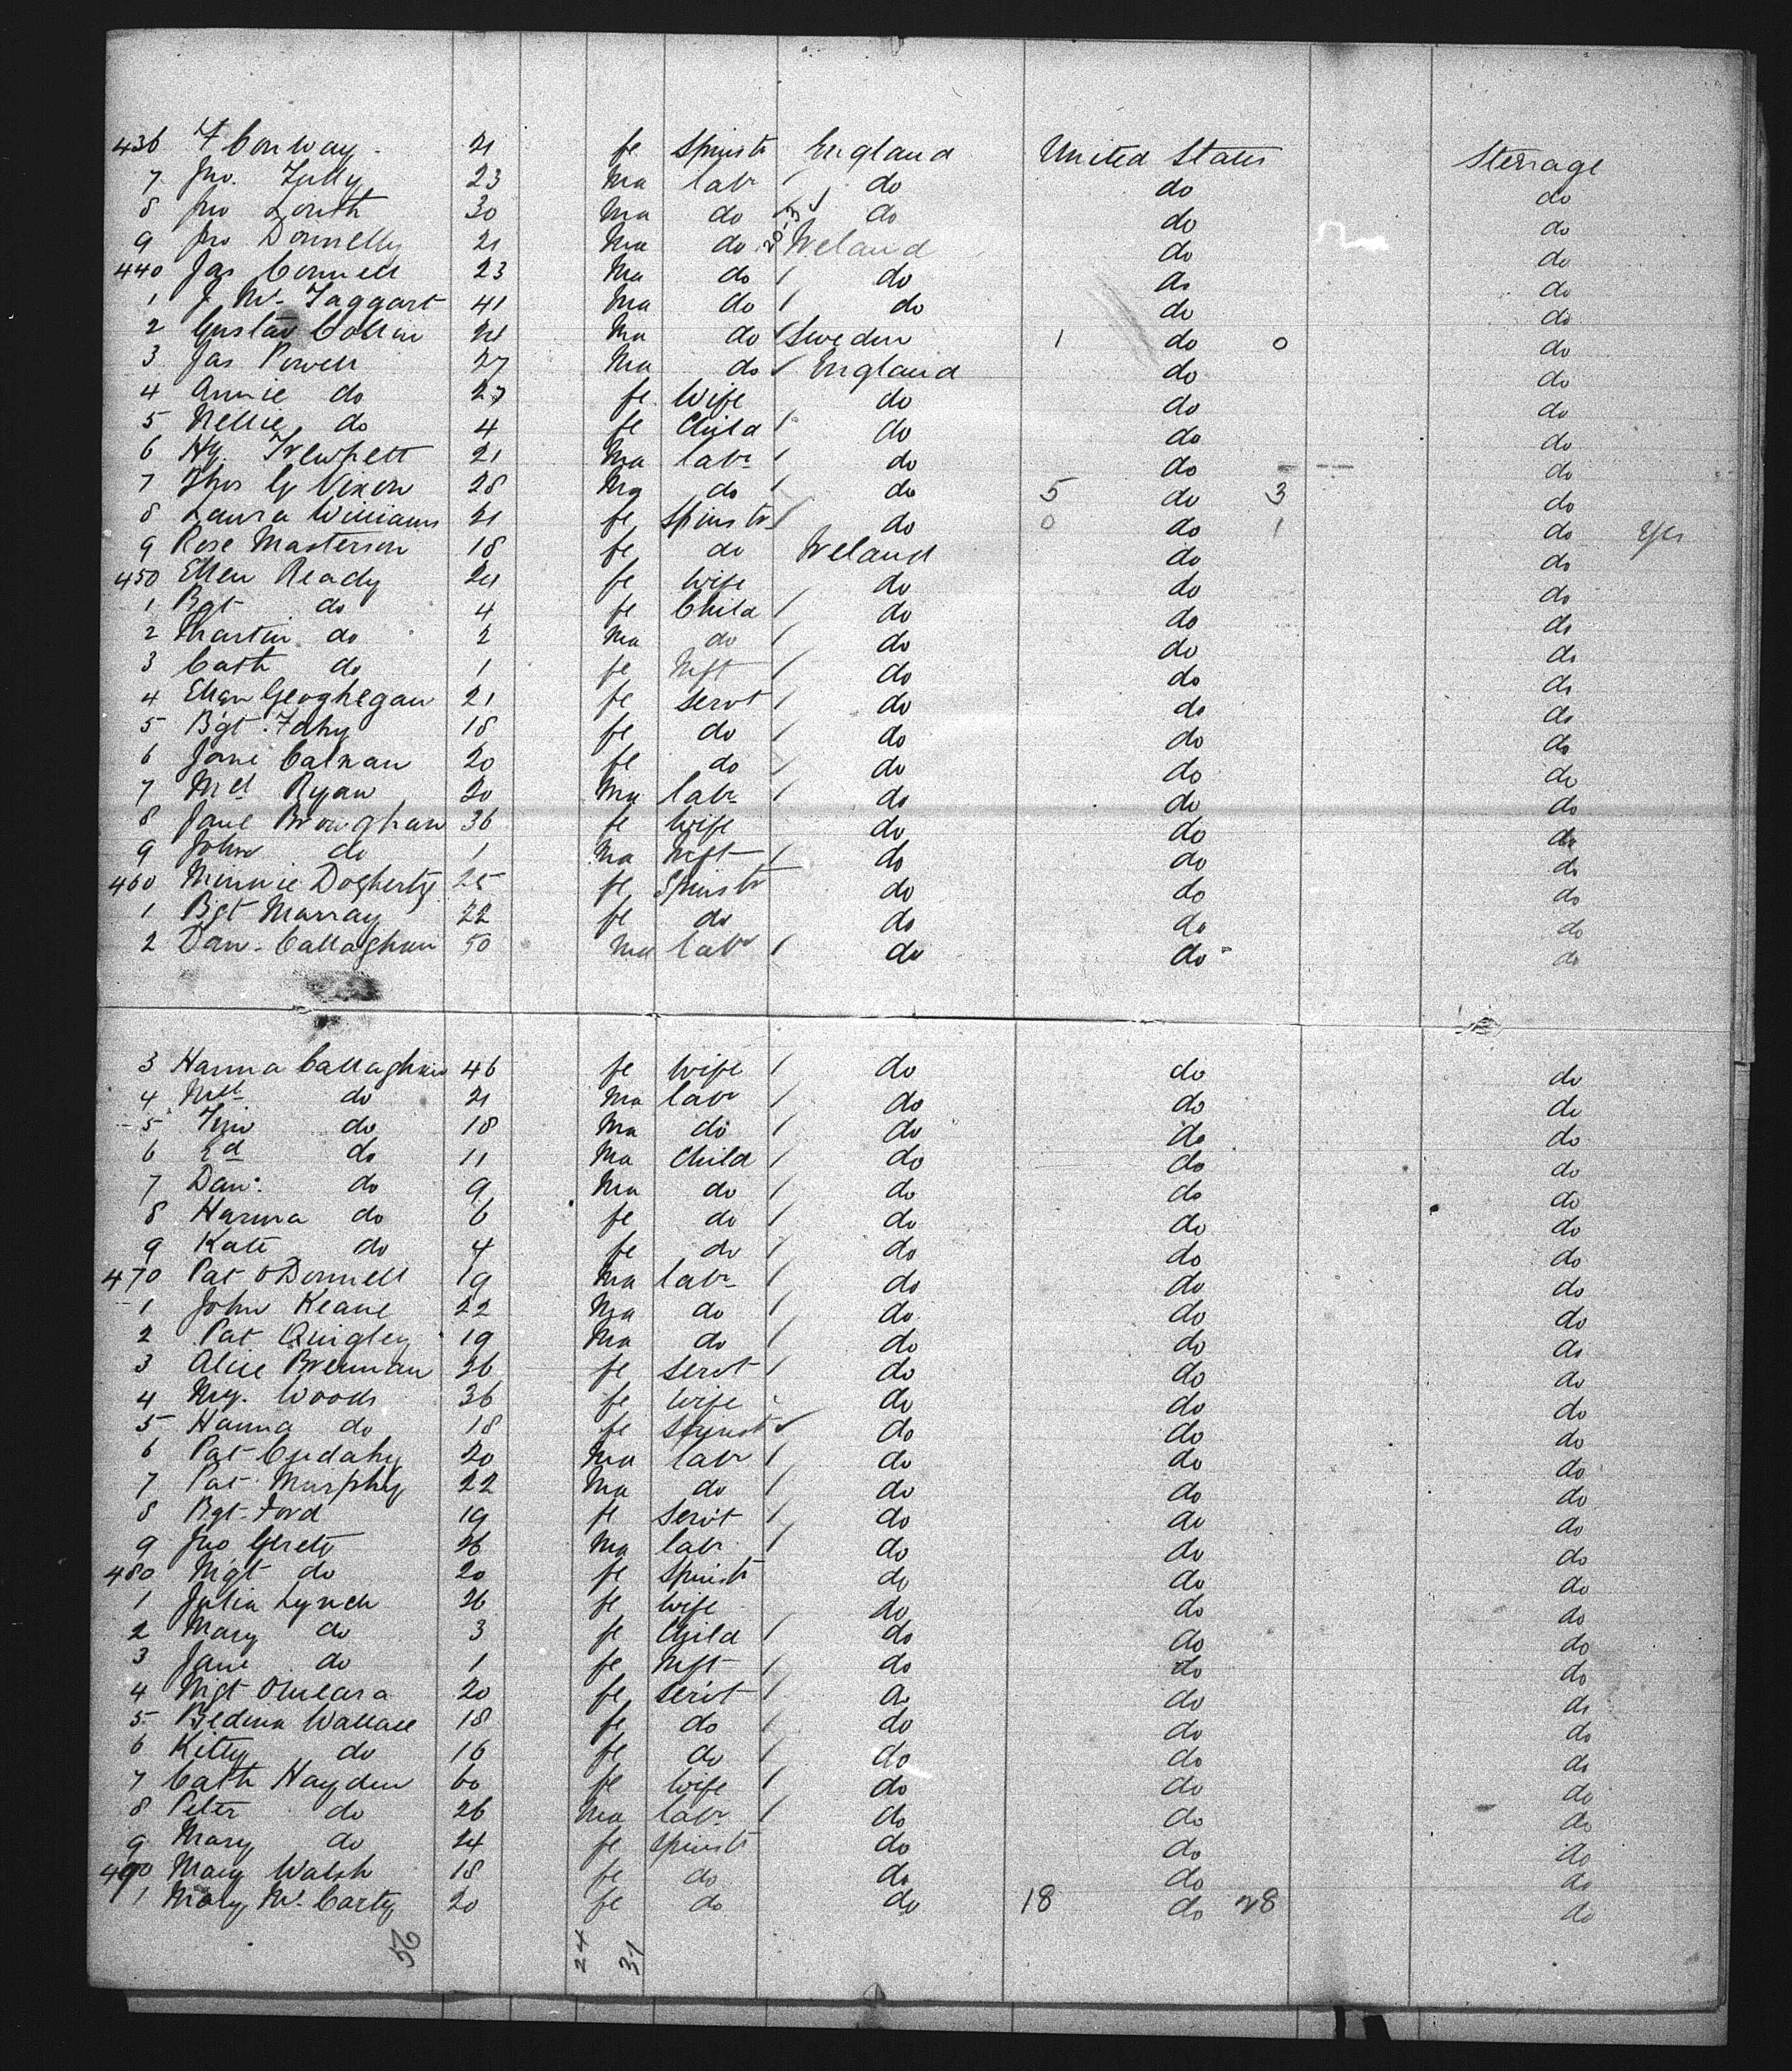 436 F Conway 21 fe Spinstr England United States Sterrage
7 Jno. Tully 23 Ma labr do do do
8 Jno Louth 30 Ma do do do do
9 Jno Donnelly 21 Ma do Ireland do do
440 Jas Connell 23 Ma do do do do
1 J. Mc Taggart 41 Ma do do do do
2 Gustav Ma do Sweden 1 do 0 do
3 Jas Powell 27 Ma do England do do
4 Annie do 27 fe Wife do do do
5 Nellie do 4 fe Child do do do
6 Hy. 21 Ma labr do do do
7 Thos G Nixon 28 Ma do do 5 do 3 do
8 Laura Williams 21 fe Spinstr do 0 do 1 do Yes
9 Rose Masterson 18 fe do Ireland do do
450 Ellen Ready 24 fe wife do do do
1 Bgt do 4 fe Child do do do
2 Martin do 2 Ma do do do do
3 Cath do 1 fe Inft do do do
4 Ellen Geoghegan 21 fe Servt do do do
5 Bgt Fahy 18 fe do do do do
6 Jane Calnan 20 fe do do do do
7 Mcl Ryan 20 Ma labr do do do
8 Jane Broughan 36 fe wife do do do
9 John do 1 Ma Inft do do do
460 Minnie Dogherty 25 fe Spinstr do do do
1 Bgt Murray 22 fe do do do do
2 Dan. Callaghan 50 Ma labr do do do
3 Hanna Callaghan 46 fe wife do do do
4 Mcl do 21 Ma labr do do do
5 Tim do 18 Ma do do do do
6 Ed do 11 Ma Child do do do
7 Dan. do 9 Ma do do do do
8 Hanna do 6 fe do do do do
9 Kate do 4 fe do do do do
470 Pat ODonnell 19 Ma labr do do do
1 John Keane 22 Ma do do do do
2 Pat Quigley 19 Ma do do do do
3 Alice Brennan 26 fe Servt do do do
4 My. Woods 36 fe wife do do do
5 Hanna do 18 fe Spinstr do do do
6 Pat Cudahy 20 Ma labr do do do
7 Pat Murphy 22 Ma do do do do
8 Bgt Ford 19 fe Servt do do do
9 Jno 26 Ma labr do do do
480 Mgt do 20 fe Spinstr do do do
1 Julia Lynch 26 fe wife do do do
2 Mary do 3 fe Child do do do
3 Jane do 1 fe Inft do do do
4 Mgt OMeara 20 fe Servt do do do
5 Bedina Wallace 18 fe do do do do
6 Kitty do 16 fe do do do do
7 Cath Hayden 60 fe wife do do do
8 Peter do 26 Ma labr do do do
9 Mary do 24 fe Spinstr do do do
490 Mary Walsh 18 fe do do do do
1 Mary Mc Carty 20 fe do do 18 do 28 do
56 24 31